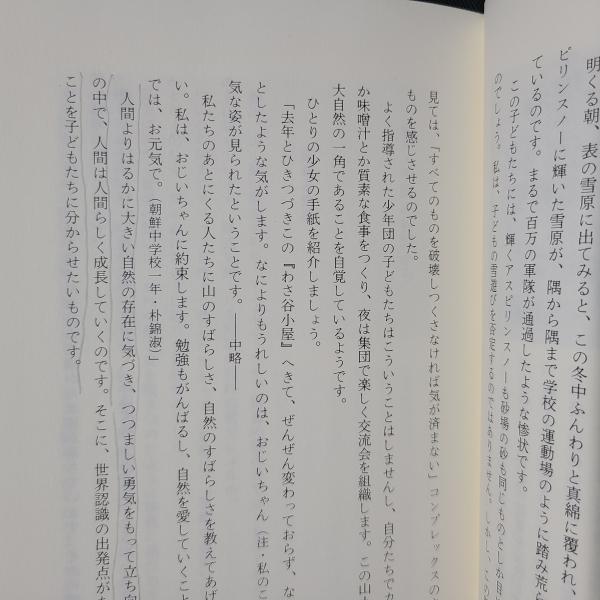 明くる朝、表の雪原に出てみると、この冬中ふんわりと真綿に覆われ、
ピリンスノーに輝いた雪原が、隅から隅まで学校の運動場のように踏み荒ら
ているのです。まるで百万の軍隊が通過したような惨状です。
この子どもたちには、輝くアスピリンスノーも砂場の砂も同じものとしか目
のでしょう。私は、子どもの雪遊びを否定するのではありません。しかし、この
見ては、「すべてのものを破壊しつくさなければ気が済まない」コンプレックスの
ものを感じさせるのでした。
よく指導された少年団の子どもたちはこういうことはしませんし、自分たちでカ
か味噌汁とか質素な食事をつくり、夜は集団で楽しく交流会を組織します。この山
大自然の一角であることを自覚しているようです。
ひとりの少女の手紙を紹介しましょう。
「去年とひきつづきこの『わさ谷小屋』へきて、ぜんぜん変わっておらず、な
としたような気がします。なによりもうれしいのは、おじいちゃん（注・私のこ
気な姿が見られたということです。――中略――
私たちのあとにくる人たちに山のすばらしさ、自然のすばらしさを教えてあげ
い。私は、おじいちゃんに約束します。勉強もがんばるし、自然を愛していくこと
では、お元気で。（朝鮮中学校一年・朴錦淑）」
人間よりはるかに大きい自然の存在に気づき、つつましい勇気をもって立ち向
の中で、人間は人間らしく成長していくのです。そこに、世界認識の出発点が
ことを子どもたちに分からせたいものです。